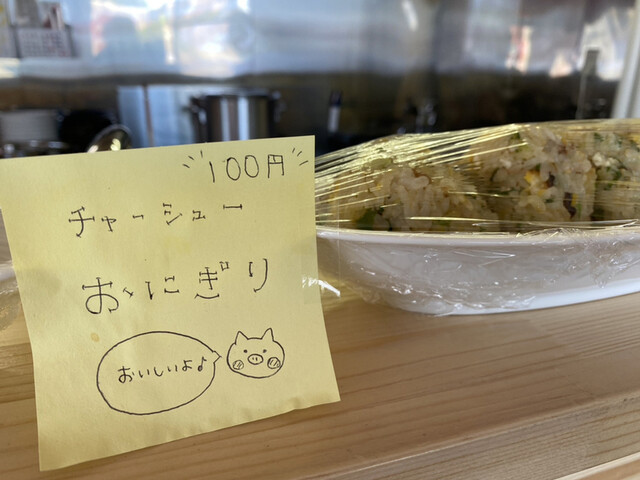 100円
チャーシュー
おにぎり
おいしいよ♪